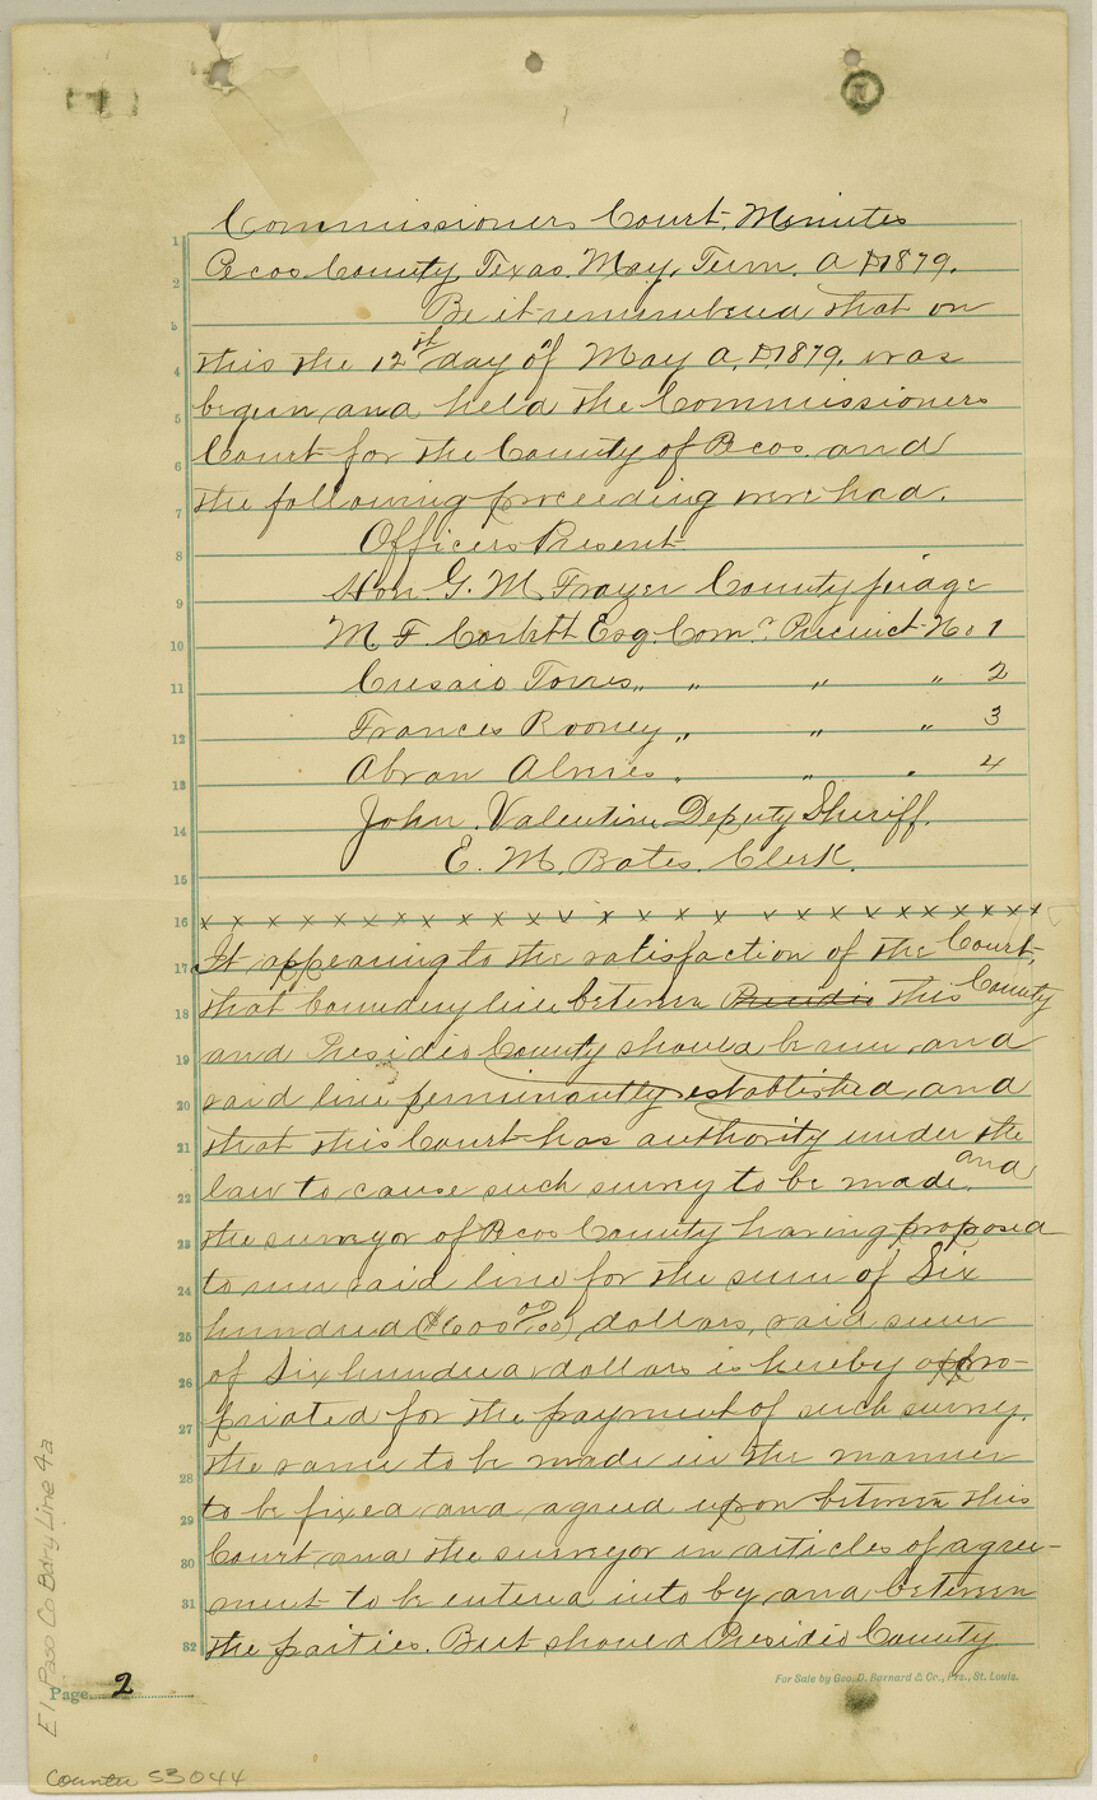 Commissioners Court, Minutes
1 Pecos County, Texas. May, Term. A D 1879.
2 Be it remembered that on
3 this the 12st day of May A. D. 1879. was
4 begun and held the Commissioners
5 Court for the County of Pecos. and
6 the following proceeding were had.
7 Officers Present
8 Hon. G. M. Frazer County judge
9 M. F. Corbett Esq. Comr. Precinct No 1
10 Cresaio Torres „ „ „ „ 2
11 Frances Rooney „ „ „ 3
12 Abran Alvires . „ . 4
13 John. Valentine Deputy Sheriff.
14 E. M. Bates. Clerk.
15
16 x x x x x x x x x x x x x x x x x x x x x x x x x
17 It appearing to the satisfaction of the Court,
18 that boundery line between Presidio this County
19 and Presidio County should be run, and
20 said line perminantly established, and
21 that this Court has authority under the
22 law to cause such survey to be made. and
23 the surveyor of Pecos County having proposed
24 to run said line for the sum of Six
25 hundred ($600 00/100) dollars, said sum
26 of Six hundred dollars is hereby appro-
27 priated for the payment of such survey.
28 the same to be made in the manner
29 to be fixed and agreed upon between this
30 Court and the surveyor in articles of agree-
31 ment to be entered into by and between
32 the parties. But should Presidio County
For Sale by Geo. D. Barnard & Co., Prs., St. Louis.
Page 2
El Paso Co Bdry Line 4a
Counter 53044